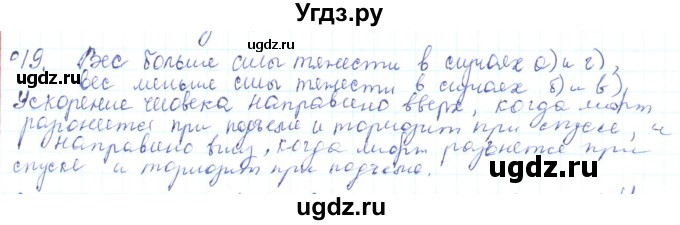 Угдз.ру
№19. Вес больше силы тяжести в случаях а) и г),
вес меньше силы тяжести в случаях б) и в),
Ускорение человека направлено вверх, когда лифт
разгоняется при подъеме и тормозит при спуске, и
направлено вниз, когда лифт разгоняется при
спуске и тормозит при подъеме.
ugdz.ru ugdz.ru ugdz.ru
ugdz.ru ugdz.ru